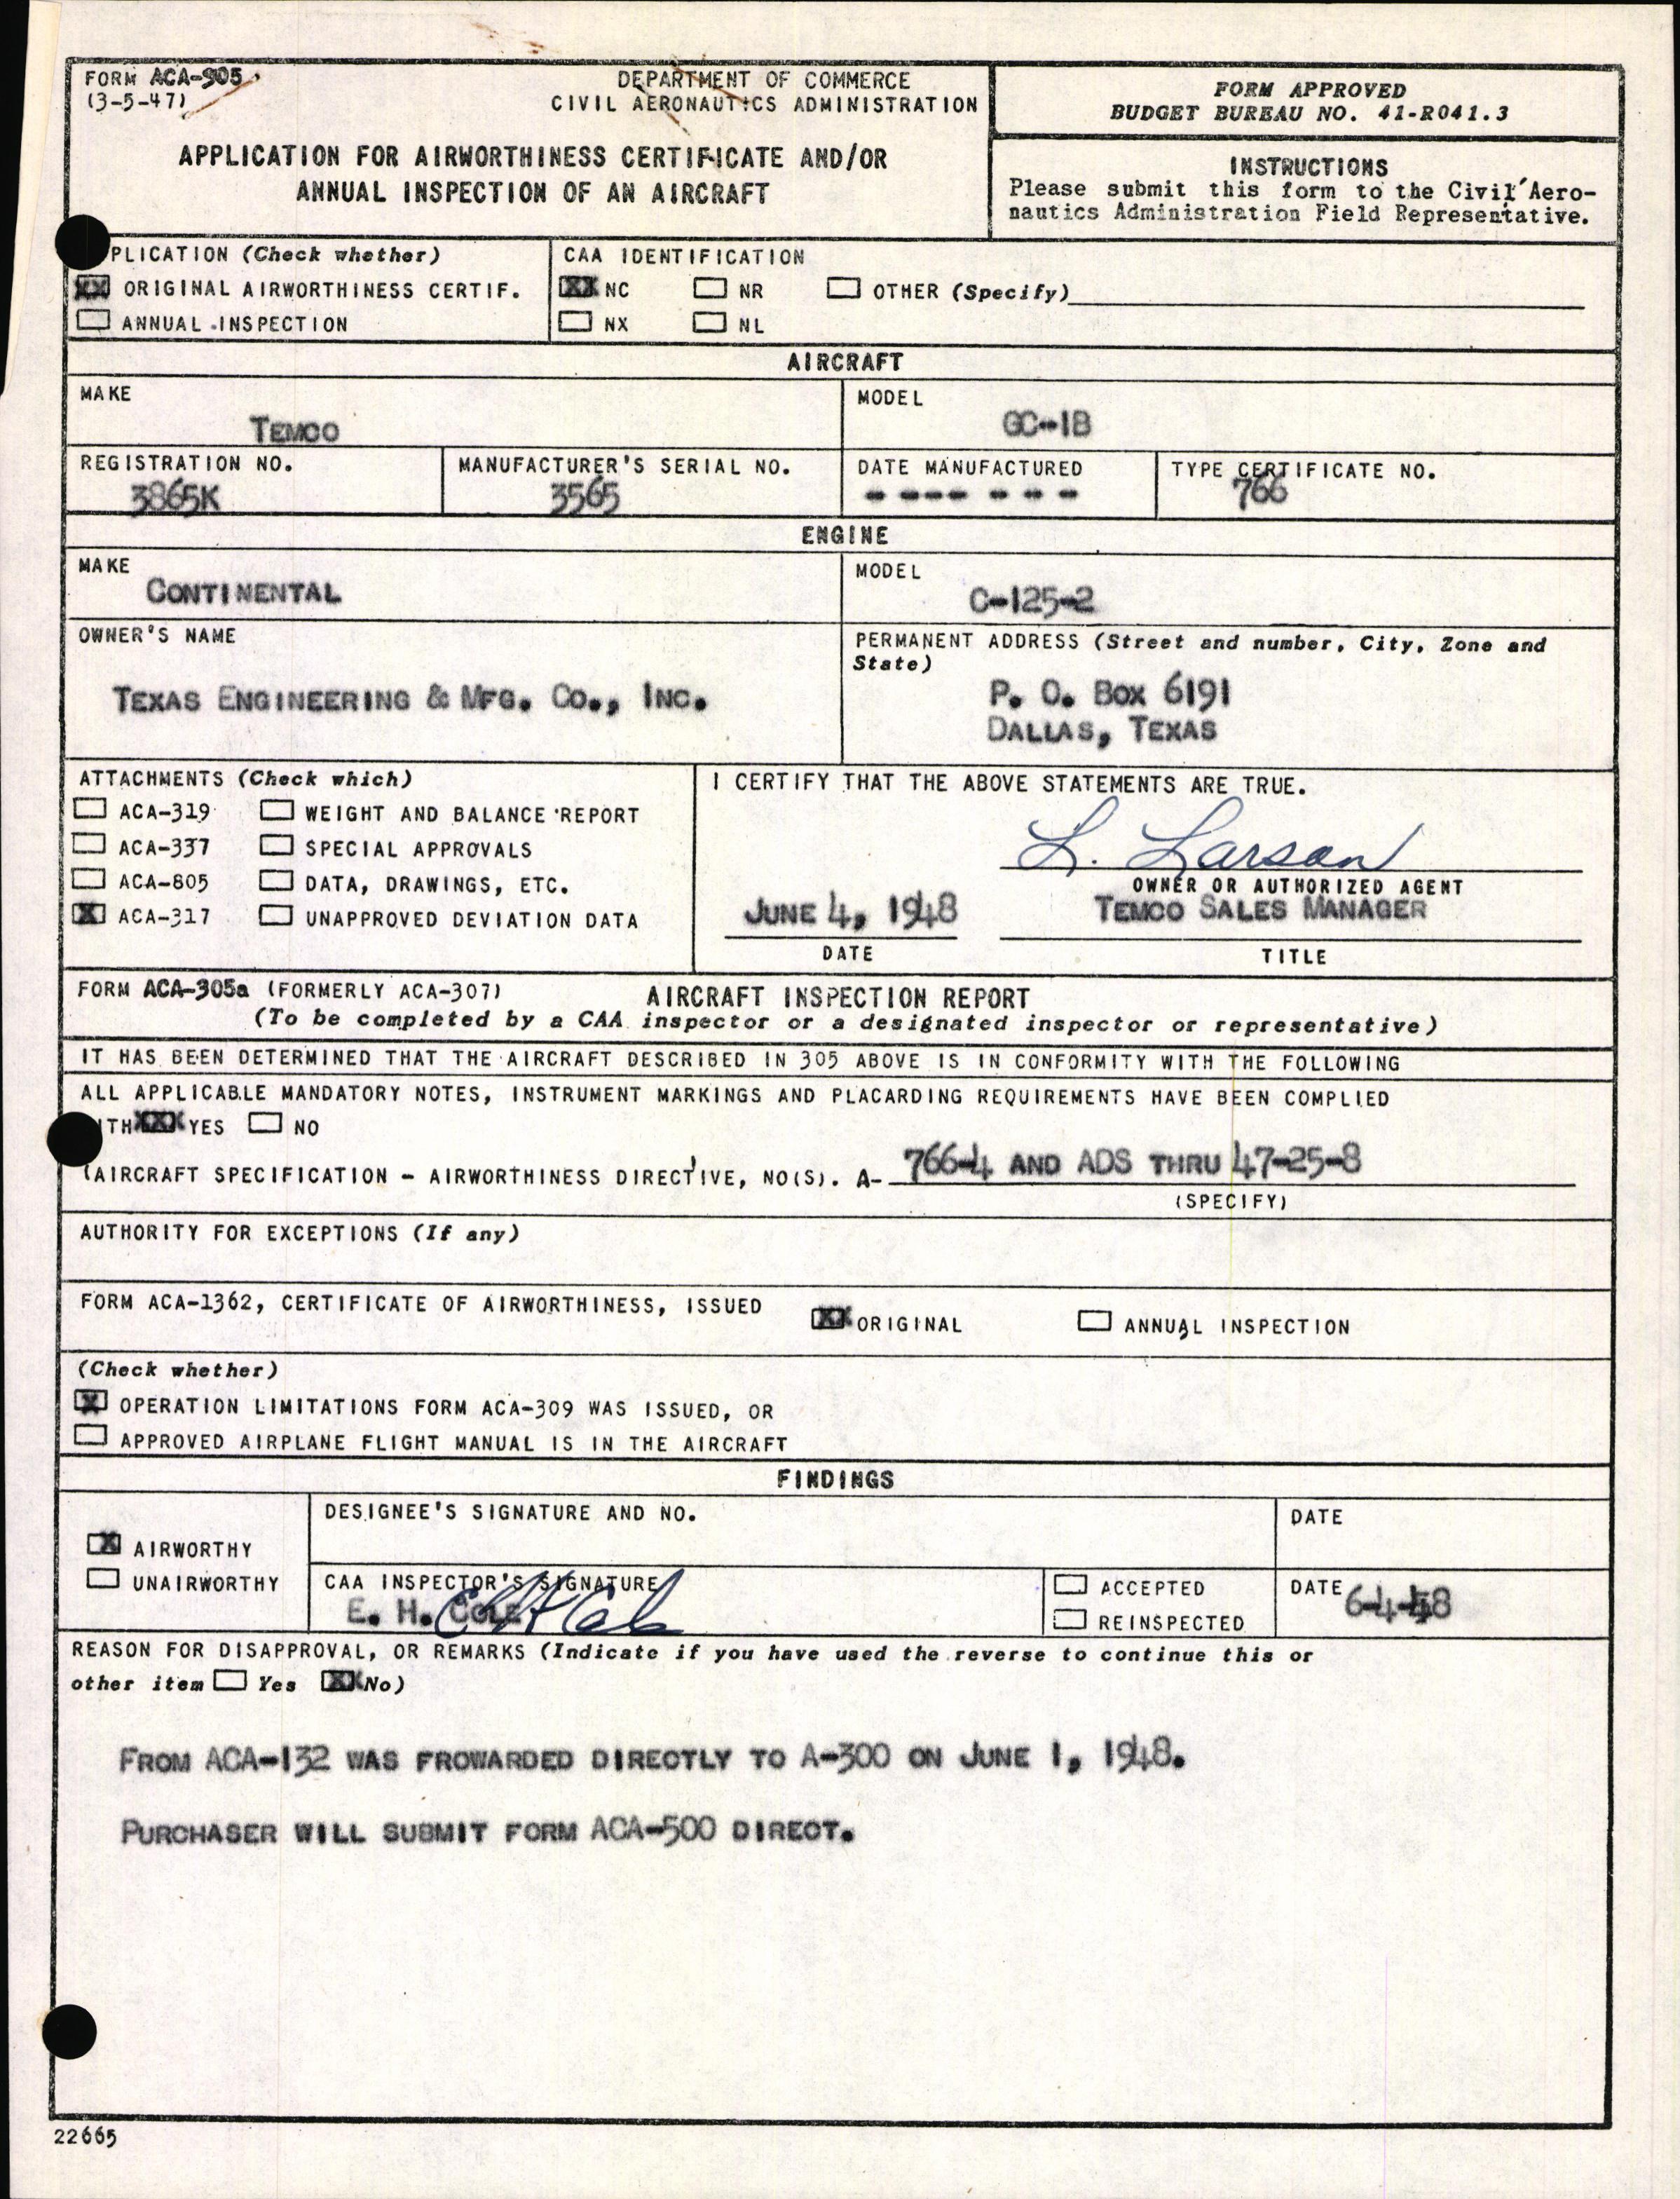 FORM ACA-305
(3-5-47)
DEPARTMENT OF COMMERCE
CIVIL AERONAUTICS ADMINISTRATION
APPLICATION FOR AIRWORTHINESS CERTIFICATE AND/OR
ANNUAL INSPECTION OF AN AIRCRAFT
FORM APPROVED
BUDGET BUREAU NO. 41-R041.3
INSTRUCTIONS
Please submit this form to the Civil Aero-
nautics Administration Field Representative.
PLICATION (Check whether)
XX ORIGINAL AIRWORTHINESS CERTIF.
ANNUAL INSPECTION
CAA IDENTIFICATION
XX NC NR OTHER (Specify)
NX NL
AIRCRAFT
MAKE
TEMCO
MODEL
GC-1B
REGISTRATION NO.
3865K
MANUFACTURER'S SERIAL NO.
3565
DATE MANUFACTURED
- --- - - -
TYPE CERTIFICATE NO.
766
ENGINE
MAKE
CONTINENTAL
MODEL
C-125-2
OWNER'S NAME
TEXAS ENGINEERING & MFG. CO., INC.
PERMANENT ADDRESS (Street and number, City, Zone and
State)
P. O. BOX 6191
DALLAS, TEXAS
ATTACHMENTS (Check which)
ACA-319 WEIGHT AND BALANCE REPORT
ACA-337 SPECIAL APPROVALS
ACA-805 DATA, DRAWINGS, ETC.
X ACA-317 UNAPPROVED DEVIATION DATA
I CERTIFY THAT THE ABOVE STATEMENTS ARE TRUE.
L. Larson
OWNER OR AUTHORIZED AGENT
JUNE 4, 1948
TEMCO SALES MANAGER
DATE
TITLE
FORM ACA-305a (FORMERLY ACA-307) AIRCRAFT INSPECTION REPORT
(To be completed by a CAA inspector or a designated inspector or representative)
IT HAS BEEN DETERMINED THAT THE AIRCRAFT DESCRIBED IN 305 ABOVE IS IN CONFORMITY WITH THE FOLLOWING
ALL APPLICABLE MANDATORY NOTES, INSTRUMENT MARKINGS AND PLACARDING REQUIREMENTS HAVE BEEN COMPLIED
ITH XXX YES NO
(AIRCRAFT SPECIFICATION - AIRWORTHINESS DIRECTIVE, NO(S). A- 766-4 AND ADS THRU 47-25-8
(SPECIFY)
AUTHORITY FOR EXCEPTIONS (If any)
FORM ACA-1362, CERTIFICATE OF AIRWORTHINESS, ISSUED XX ORIGINAL ANNUAL INSPECTION
(Check whether)
X OPERATION LIMITATIONS FORM ACA-309 WAS ISSUED, OR
APPROVED AIRPLANE FLIGHT MANUAL IS IN THE AIRCRAFT
FINDINGS
X AIRWORTHY
UNAIRWORTHY
DESIGNEE'S SIGNATURE AND NO.
DATE
CAA INSPECTOR'S SIGNATURE
E. H. COLE
E H Cole
ACCEPTED
REINSPECTED
DATE 6-4-48
REASON FOR DISAPPROVAL, OR REMARKS (Indicate if you have used the reverse to continue this or
other item Yes XX No)
FROM ACA-132 WAS FROWARDED DIRECTLY TO A-300 ON JUNE 1, 1948.
PURCHASER WILL SUBMIT FORM ACA-500 DIRECT.
22665